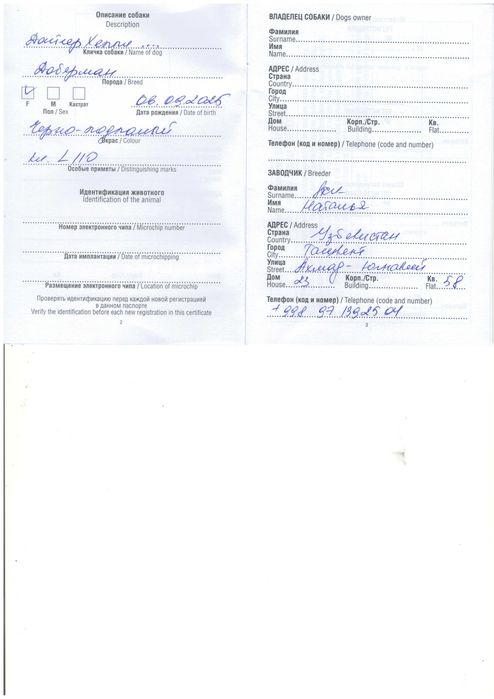 Описание собаки
Description
Дайгер Хеппи ....
Кличка собаки / Name of dog
Доберман
Порода / Breed
F M Кастрат
Пол / Sex
06.09.2025
Дата рождения / Date of birth
Черно-подпалый
Окрас / Colour
кл. L 110
Особые приметы / Distinguishing marks
Идентификация животного
Identification of the animal
Номер электронного чипа / Microchip number
Дата имплантации / Date of microchipping
Размещение электронного чипа / Location of microchip
Проверять идентификацию перед каждой новой регистрацией
в данном паспорте
Verify the identification before each new registration in this certificate
2
ВЛАДЕЛЕЦ СОБАКИ / Dogs owner
Фамилия
Surname
Имя
Name
АДРЕС / Address
Страна
Country
Город
City
Улица
Street
Дом Корп./Стр. Кв.
House Building Flat
Телефон (код и номер) / Telephone (code and number)
ЗАВОДЧИК / Breeder
Фамилия
Surname
Имя
Name Наталья
АДРЕС / Address
Страна
Country Узбекистан
Город
City Ташкент
Улица
Street Ахмад-
Дом Корп./Стр. Кв.
House 23 Building Flat 58
Телефон (код и номер) / Telephone (code and number)
+998 97 1392504
3